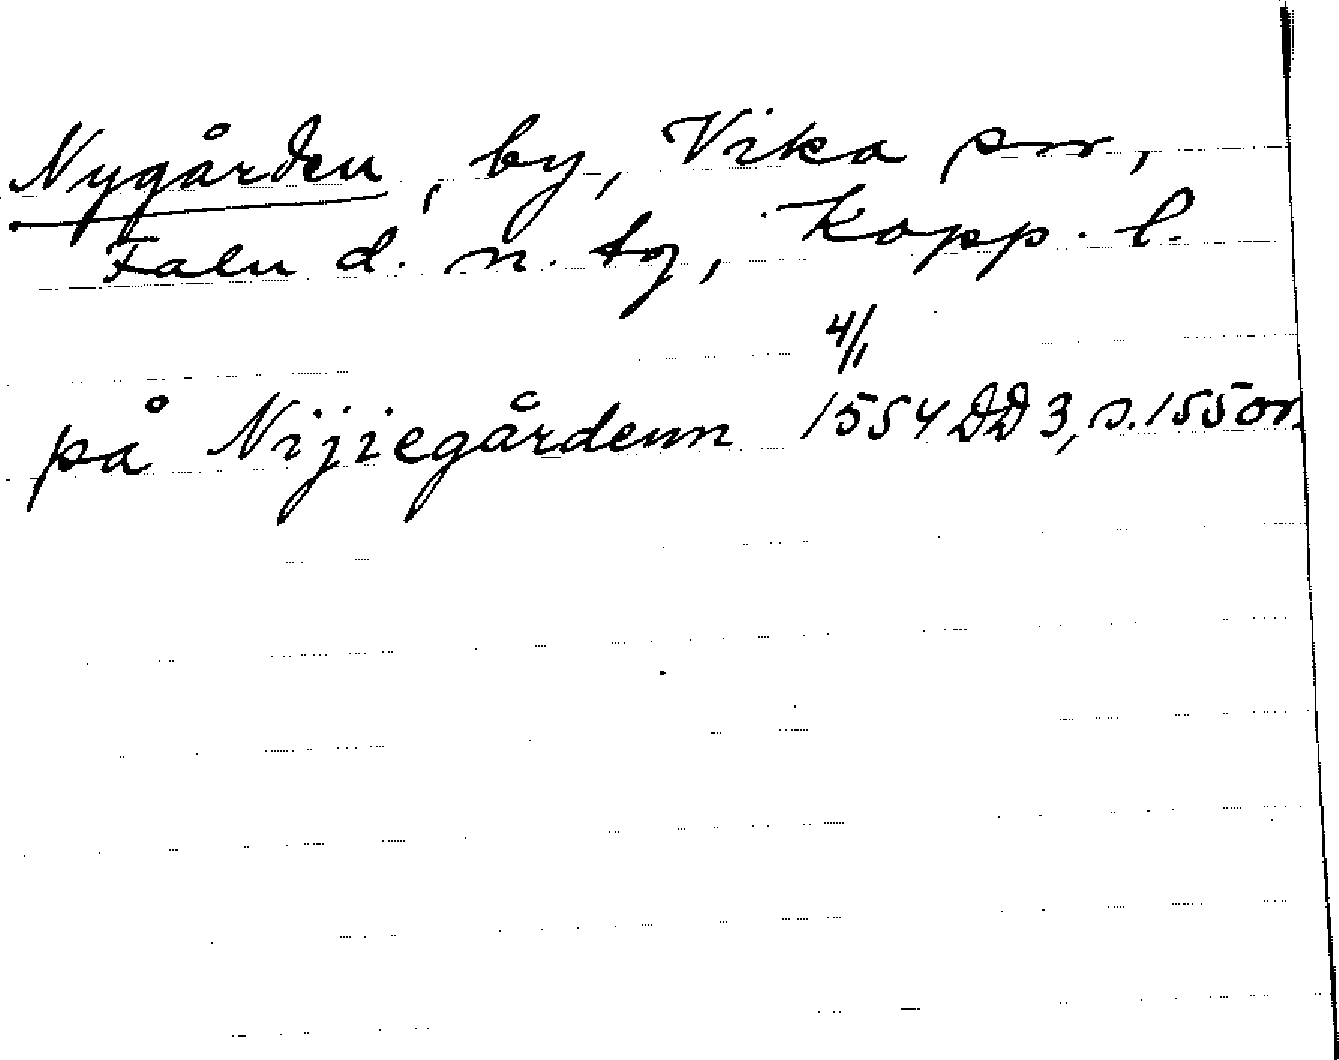 Nygården, by, Vika sn,
Falu d. n. tg, Kopp. l.
4/1
på Nijiegårdenn 1554 DD 3, s. 155 or.